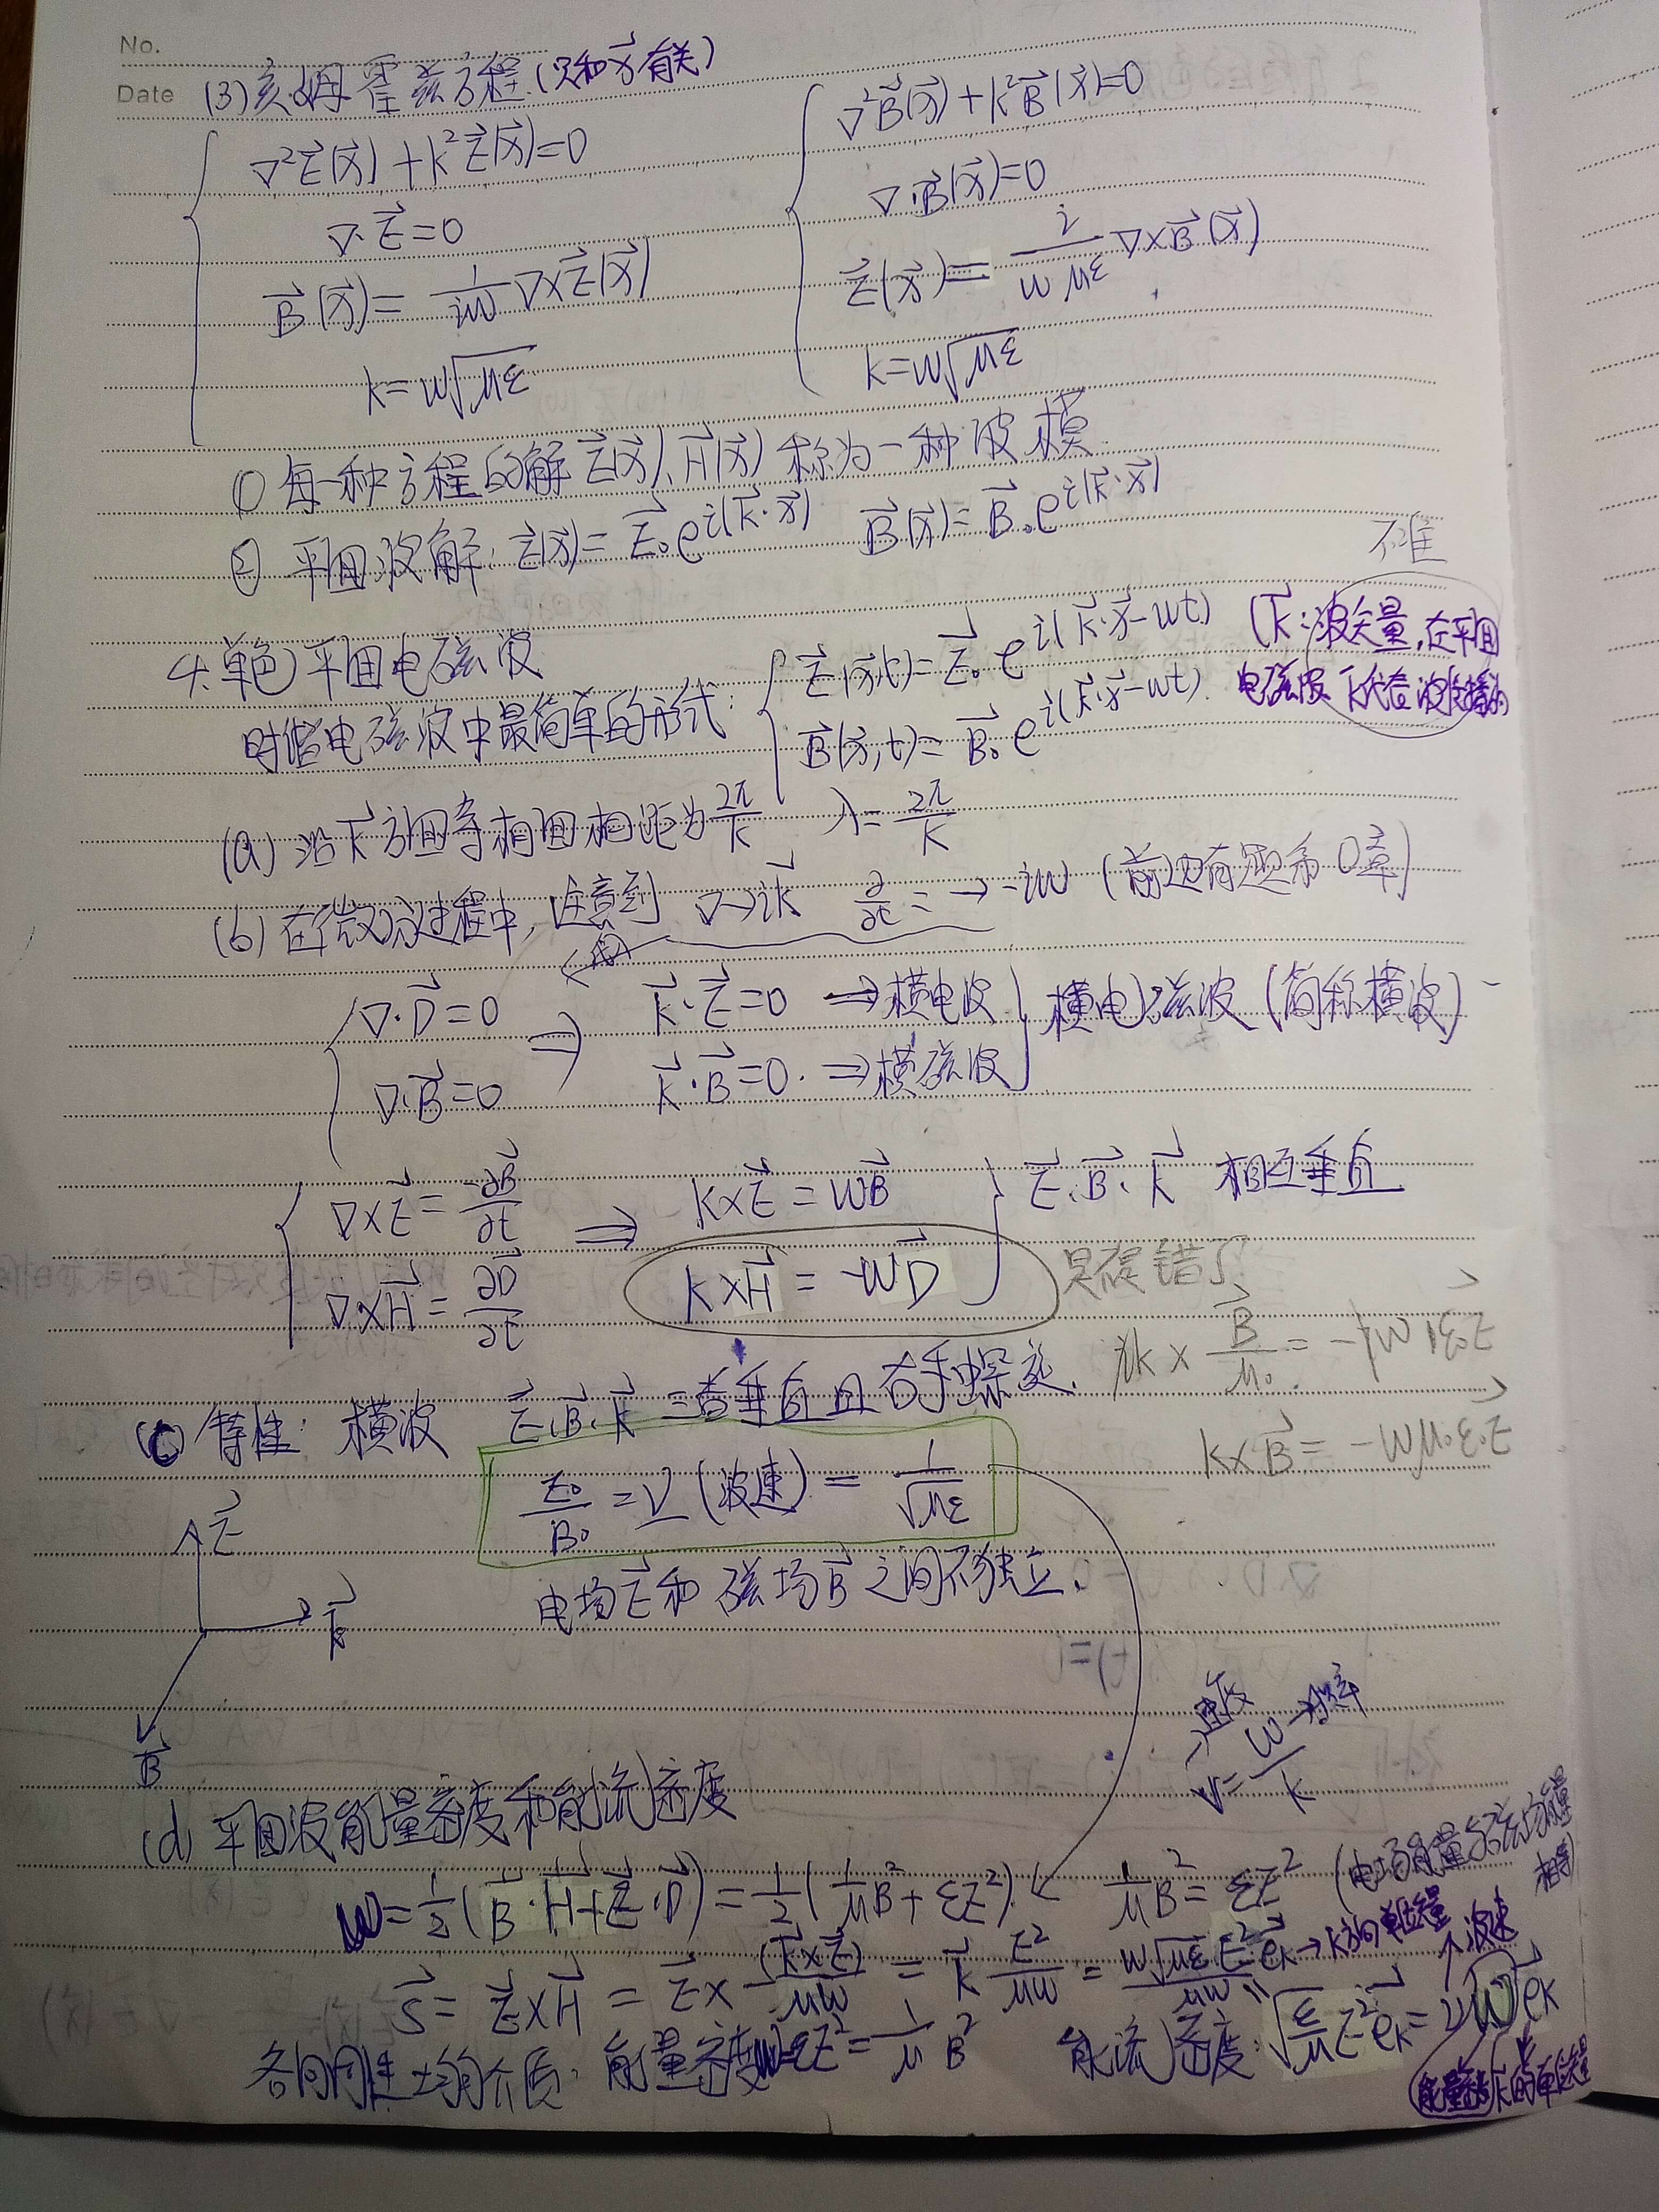 No.
Date
(3) 亥姆霍兹方程 (只和x⃗有关)
∇²E⃗(x⃗) + k²E⃗(x⃗) = 0
∇·E⃗ = 0
B⃗(x⃗) = 1/(iω) ∇×E⃗(x⃗)
k = ω√(με)
∇²B⃗(x⃗) + k²B⃗(x⃗) = 0
∇·B⃗(x⃗) = 0
E⃗(x⃗) = i/(ωμε) ∇×B⃗(x⃗)
k = ω√(με)
① 每一种方程的解 E⃗(x⃗)、H⃗(x⃗) 称为一种波模
② 平面波解: E⃗(x⃗) = E⃗₀e^{i(k⃗·x⃗)} B⃗(x⃗) = B⃗₀e^{i(k⃗·x⃗)}
不准
4. 单色平面电磁波
时谐电磁波中最简单的形式:
E⃗(x⃗,t) = E⃗₀e^{i(k⃗·x⃗-ωt)}
B⃗(x⃗,t) = B⃗₀e^{i(k⃗·x⃗-ωt)}
(k⃗: 波矢量, 在平面
电磁波
(a) 沿k⃗方向等相面相距为 2π/k λ = 2π/k
(b) 在微分过程中, 注意到 ∇→ik⃗ ∂/∂t = → -iω (前边有题第0章)
用
∇·D⃗ = 0
∇·B⃗ = 0
⇒ k⃗·E⃗ = 0 ⇒ 横电波
k⃗·B⃗ = 0. ⇒ 横磁波
横电磁波 (简称横波)
∇×E⃗ = -∂B⃗/∂t
∇×H⃗ = ∂D⃗/∂t
⇒ k×E⃗ = ωB⃗
k×H⃗ = -ωD⃗
E⃗、B⃗、k⃗ 相互垂直
错了
ik × B⃗/μ₀ = -iωε₀E⃗
k×B⃗ = -ωμ₀ε₀E⃗
(c) 特性: 横波 E⃗、B⃗、k⃗ 三者垂直且右手螺旋.
E₀/B₀ = v (波速) = 1/√(με)
电场E⃗和磁场B⃗之间不独立.
E⃗
k⃗
B⃗
v⃗ = ω/k
速度
→频率
(d) 平面波能量密度和能流密度
w = 1/2(B⃗·H⃗+E⃗·D⃗) = 1/2(1/μ B²+εE²) 1/μ B² = εE² (电场能量与磁场能量
相等)
S⃗ = E⃗×H⃗ = E⃗×(k⃗×E⃗)/(μω) = k⃗ E²/(μω) = ω√(με)/(μω) E² e⃗k → k方向单位矢量
波速
各向同性均匀介质: 能量密度w=εE² = 1/μ B² 能流密度: √(ε/μ) E² e⃗k = vw e⃗k
能量密度
k的单位矢量